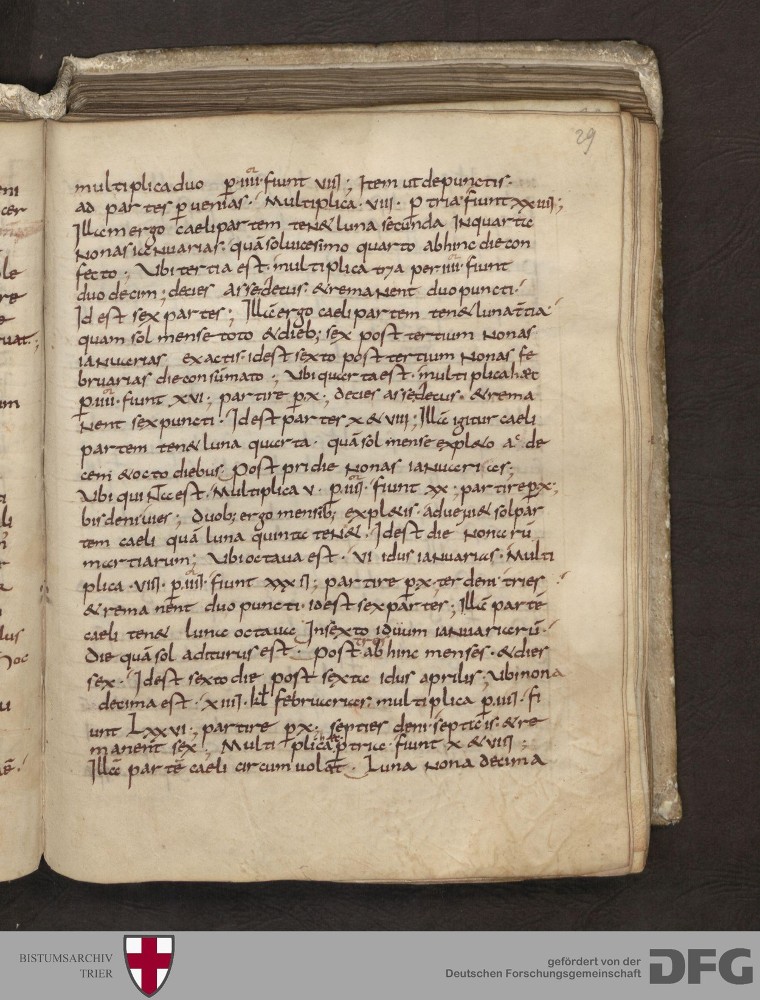 29
multiplica duo p̱ · iiii · fiunt viii ; Item ut de punctis ·
ad partes ꝑvenias · Multiplica · viii · ꝑ tria · fiunt xxiiii ;
Illam ergo caeli partem ten& luna secunda In quarto
Nonas ianuarias · quā sol vicesimo quarto abhinc die con
fecto ; Ubi tertia est · multiplica tria per iiii · fiunt
duodecim ; decies asse decus · & remanent duo puncti ·
Id est sex partes ; Illā ergo caeli partem ten& luna t̄tia
quam sol mense toto & dieb; sex post tertium Nonas
ianuarias exactis · id est sexto post tertium Nonas fe
bruarias die consumato ; Ubi quarta est · multiplica hęc
ꝑ · iiii · fiunt xvi ; partire ꝑ x · ; decies asse decus · & rema
Nent sex puncti · Id est partes x & viii ; Illā igitur caeli
partem ten& luna quarta · quā sol mense expl&o ac de
cem & octo diebus · Post pridie Nonas ianuarias ;
Ubi quinta est · Multiplica v · ꝑ iiii · fiunt xx ; partire ꝑ x · ;
bis deni vies ; Duob; ergo mensib; expl&is · adveni& sol par
tem caeli quā luna quinta ten& · Id est die Nonarū
martiarum ; Ubi octava est · vi idus ianuarias · Multi
plica · viii · ꝑ iiii · fiunt xxxii ; partire ꝑ x · ter deni tries
& remanent duo puncti · id est sex partes ; Illā partē
caeli ten& luna octava In sexto iduum ianuariarū ·
Die quā sol aditurus est · Post tres abhinc menses · & dies
sex · Id est sexto die post sexta idus aprilis · Ubi nona
decima est · xiiii · kl februarias · multiplica ꝑ iiii · fi
unt Lxxvi ; partire ꝑ x · ; septies deni septies · & re
manent sex ; Multiplica ꝑ tria · fiunt x & viii ;
Illā partē caeli circumvolat · Luna nona decima
BISTUMSARCHIV
TRIER
gefördert von der
Deutschen Forschungsgemeinschaft
DFG